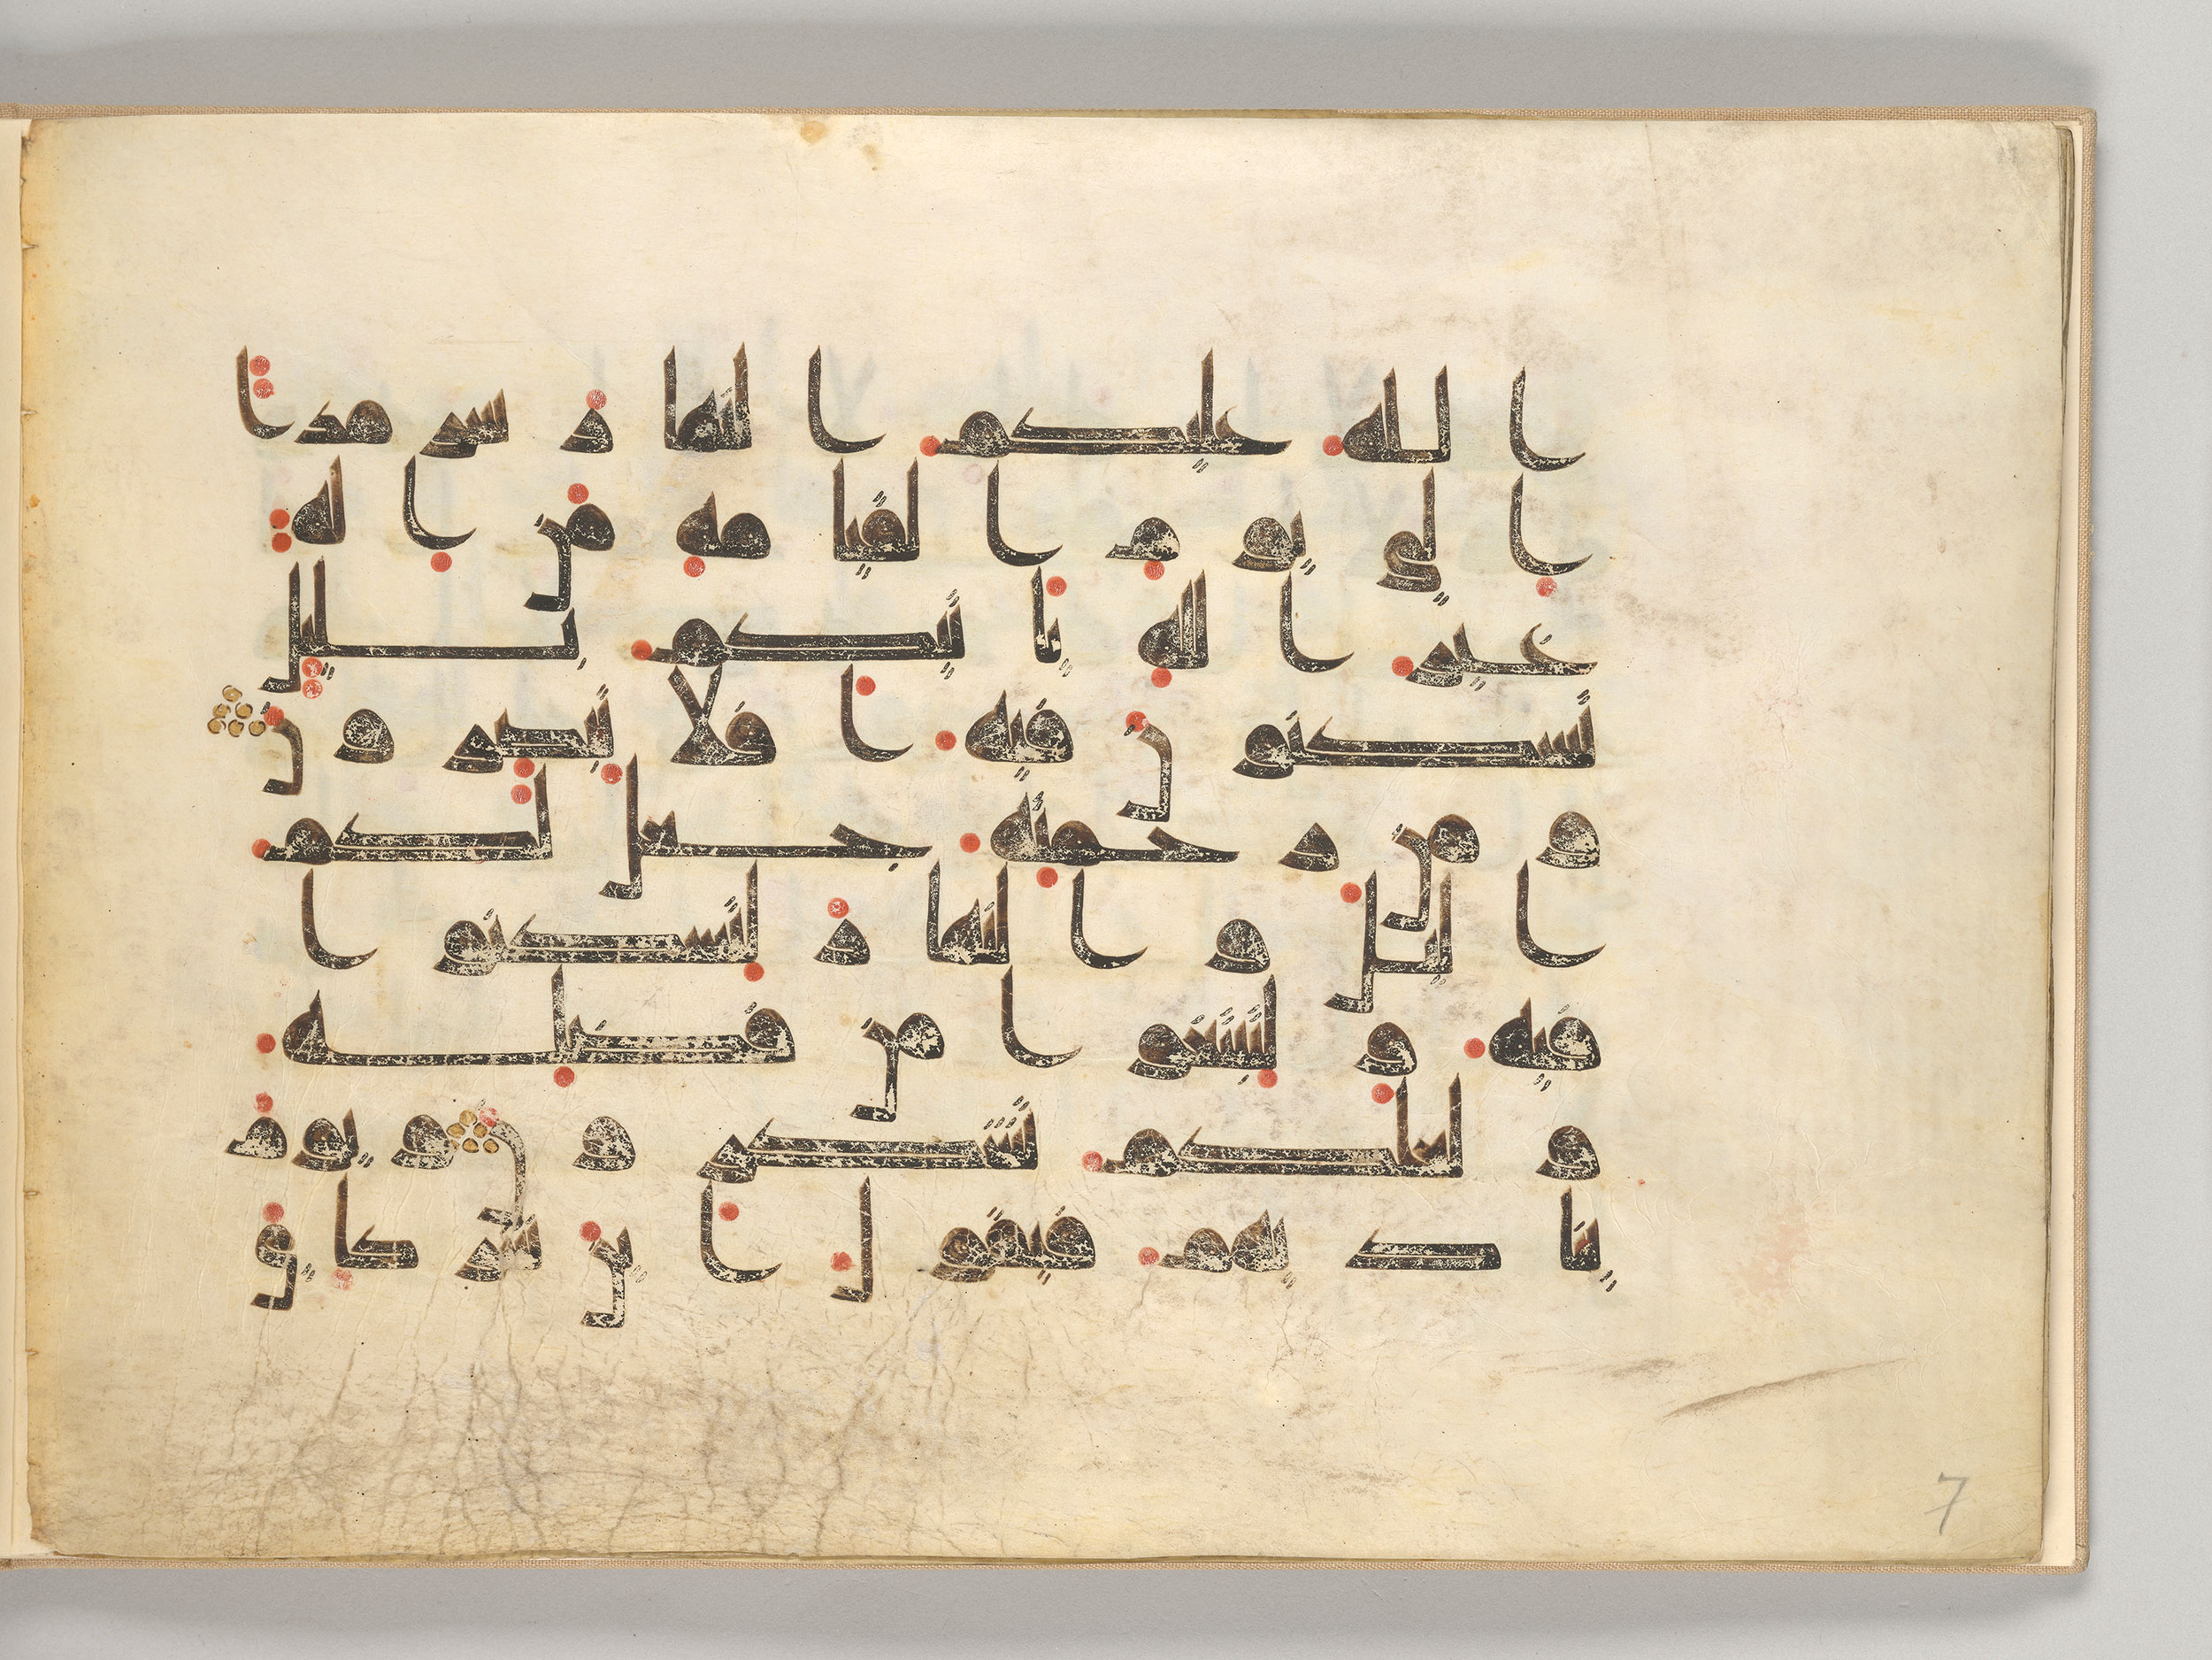 الله عليكم النهار سرمدا
الى يوم القيمه من اله
غير الله ياتيكم بليل
تسكنون فيه افلا تبصرون
ومن رحمته جعل لكم
اليل والنهار لتسكنوا
فيه ولتبتغوا من فضله
ولعلكم تشكرون ويوم
يناديهم فيقول اين شركاى
7